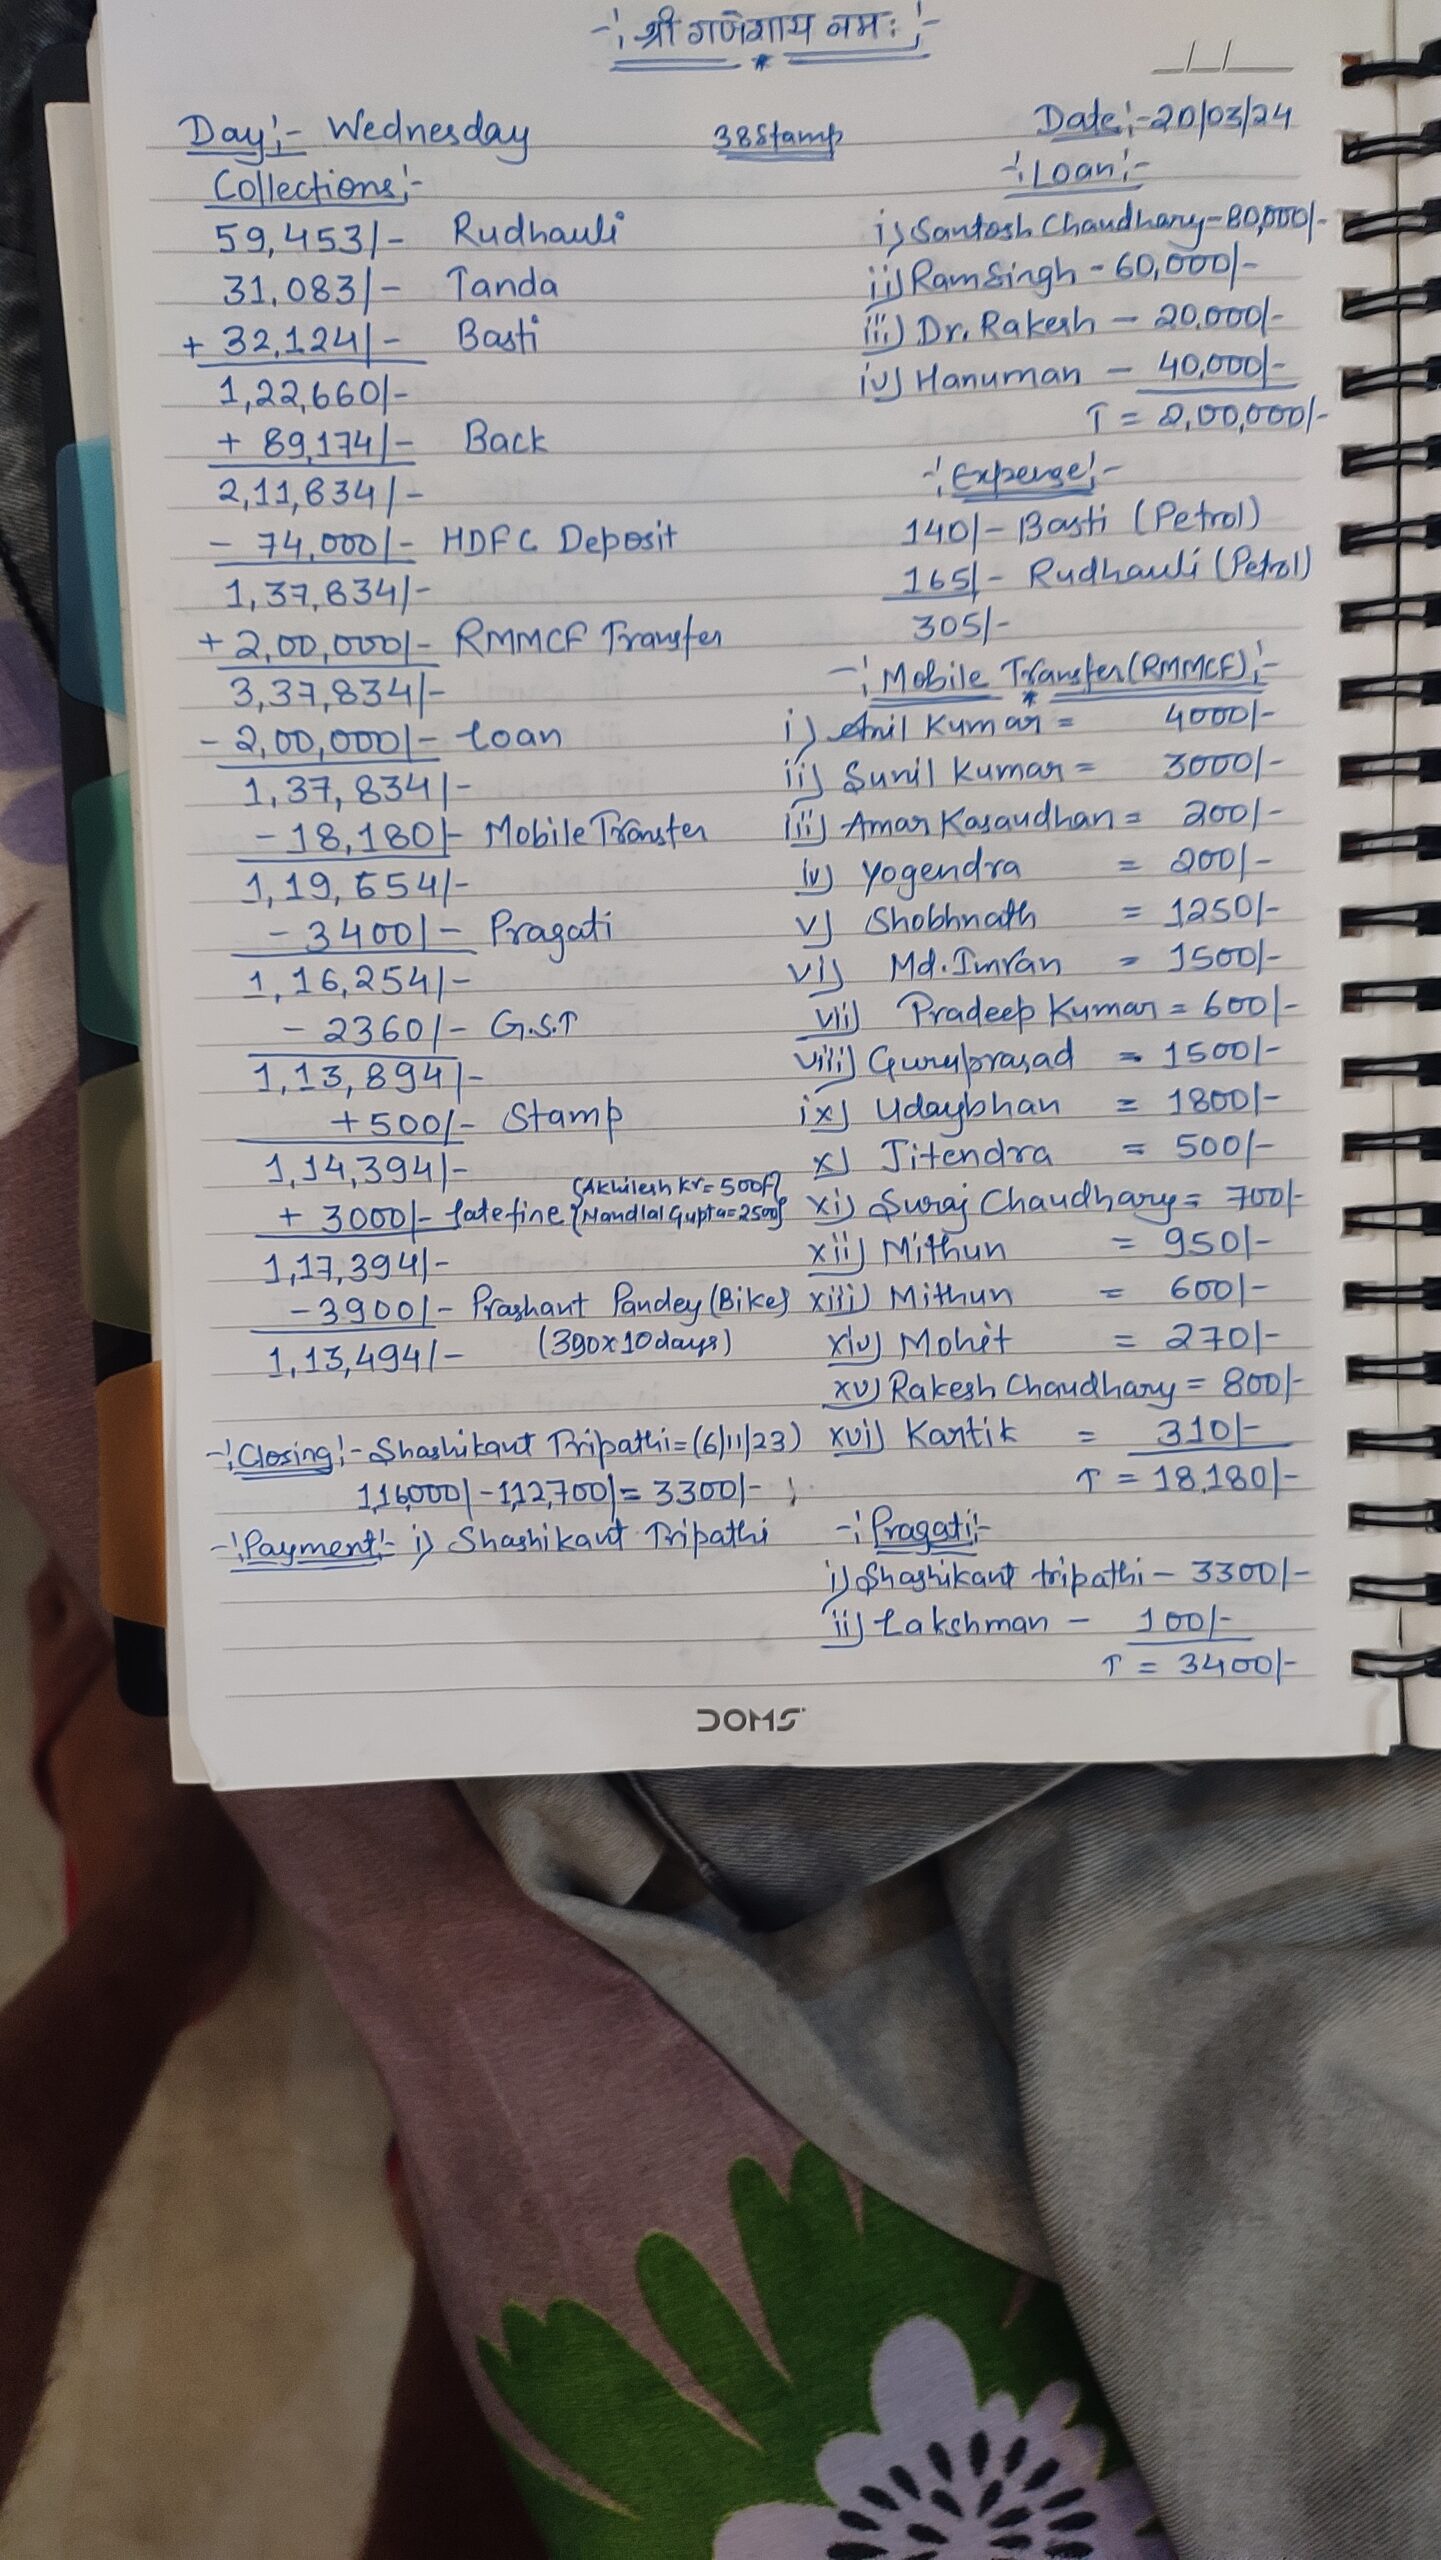 -: श्री गणेशाय नमः :-
Day:- Wednesday
38 Stamp
Date:- 20/03/24
Collections:-
59,453/- Rudhauli
31,083/- Tanda
+ 32,124/- Basti
1,22,660/-
+ 89,174/- Back
2,11,834/-
- 74,000/- HDFC Deposit
1,37,834/-
+ 2,00,000/- RMMCF Transfer
3,37,834/-
- 2,00,000/- Loan
1,37,834/-
- 18,180/- Mobile Transfer
1,19,654/-
- 3400/- Pragati
1,16,254/-
- 2360/- G.S.T
1,13,894/-
+ 500/- Stamp
1,14,394/-
+ 3000/- Latefine {Akhilesh Kr = 500/-
{Nandlal Gupta = 2500/-
1,17,394/-
- 3900/- Prashant Pandey (Bike)
1,13,494/- (390x10days)
-: Closing :- Shashikant Tripathi = (6/11/23)
1,16,000/- - 1,12,700/- = 3300/-
-: Payment :- i) Shashikant Tripathi
-: Loan :-
i) Santosh Chaudhary - 80,000/-
ii) Ram Singh - 60,000/-
iii) Dr. Rakesh - 20,000/-
iv) Hanuman - 40,000/-
T = 2,00,000/-
-: Expense :-
140/- Basti (Petrol)
165/- Rudhauli (Petrol)
305/-
-: Mobile Transfer (RMMCF) :-
i) Anil Kumar = 4000/-
ii) Sunil Kumar = 3000/-
iii) Amar Kasaudhan = 200/-
iv) Yogendra = 200/-
v) Shobhnath = 1250/-
vi) Md. Imran = 1500/-
vii) Pradeep Kumar = 600/-
viii) Guruprasad = 1500/-
ix) Udaybhan = 1800/-
x) Jitendra = 500/-
xi) Suraj Chaudhary = 700/-
xii) Mithun = 950/-
xiii) Mithun = 600/-
xiv) Mohit = 270/-
xv) Rakesh Chaudhary = 800/-
xvi) Kartik = 310/-
T = 18,180/-
-: Pragati :-
i) Shashikant tripathi - 3300/-
ii) Lakshman - 100/-
T = 3400/-
DOMS